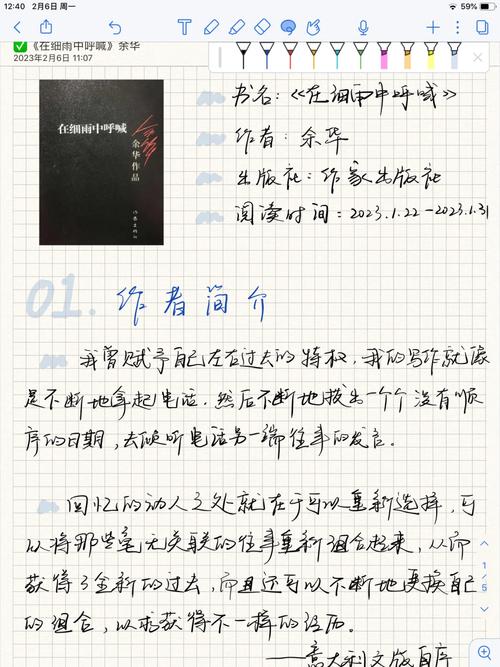 12:40 2月6日 周一
59%
✅《在细雨中呼喊》余华
2023年2月6日 11:07
在细雨中呼喊
余华作品
作家出版社
书名：《在细雨中呼喊》
作者：余华
出版社：作家出版社
阅读时间：2023.1.22-2023.1.31
01. 作者简介
我曾赋予自己左右过去的特权，我的写作就像
是不断地拿起电话，然后不断地拨出一个个没有顺
序的日期，去倾听电话另一端往事的发言。
回忆的动人之处就在于可以重新选择，可
以将那些毫无关联的往事重新组合起来，从而
获得了全新的过去，而且还可以不断地更换自己
的组合，以求获得不一样的经历。
——意大利文版自序
1/5